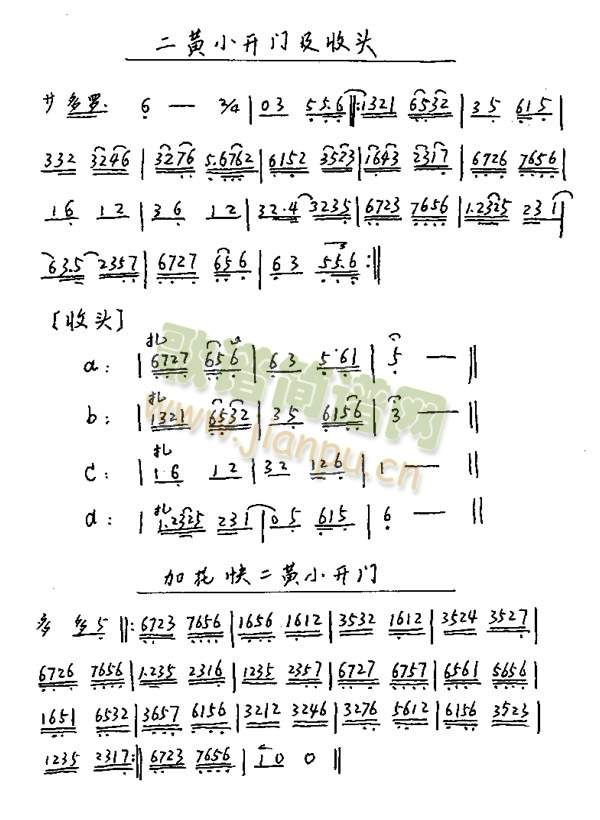 二黄小开门及收头
サ 多罗. 6 — 3/4 | 0 3 55.6 ‖: 1321 6532 | 3 5 61 5 |
332 3246 | 3276 5.6762 | 6152 3523 | 1643 2317 | 6726 7656 |
1 6 1 2 | 3 6 1 2 | 32.4 3235 | 6723 7656 | 1.2325 231 |
63.5 2357 | 6727 656 | 6 3 55.6 :‖
[收头]
a: | 扎 6727 656 | 6 3 5.61 | 5 — ‖
b: | 扎 1321 6532 | 3 5 6156 | 3 — ‖
c: | 扎 1.6 1 2 | 3 2 126 | 1 — ‖
d: | 扎 1.2325 231 | 0 5 615 | 6 — ‖
歌谱简谱网
www.jianpu.cn
加花快二黄小开门
多 多 5 ‖: 6723 7656 | 1656 1612 | 3532 1612 | 3524 3527 |
6726 7656 | 1.235 2316 | 1235 2357 | 6727 6757 | 6561 5656 |
1651 6532 | 3657 6156 | 3212 3246 | 3276 5612 | 6156 3523 |
1235 2317 :‖ 6723 7656 | 1 0 0 ‖